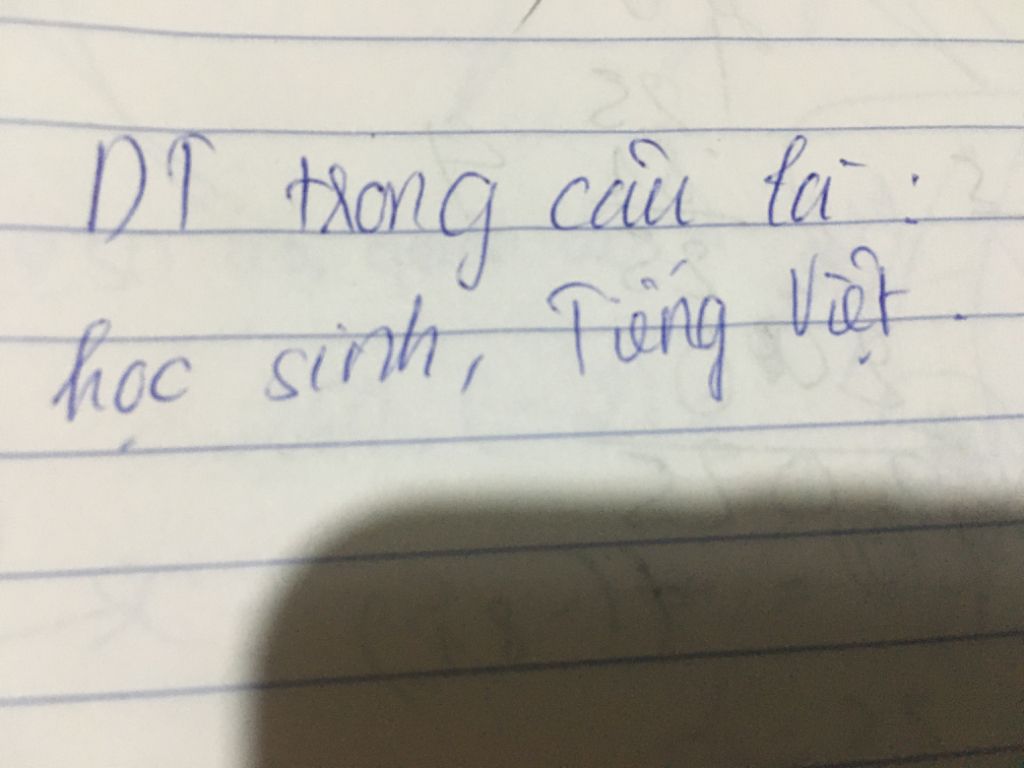 DT trong câu là :
học sinh, Tiếng Việt.